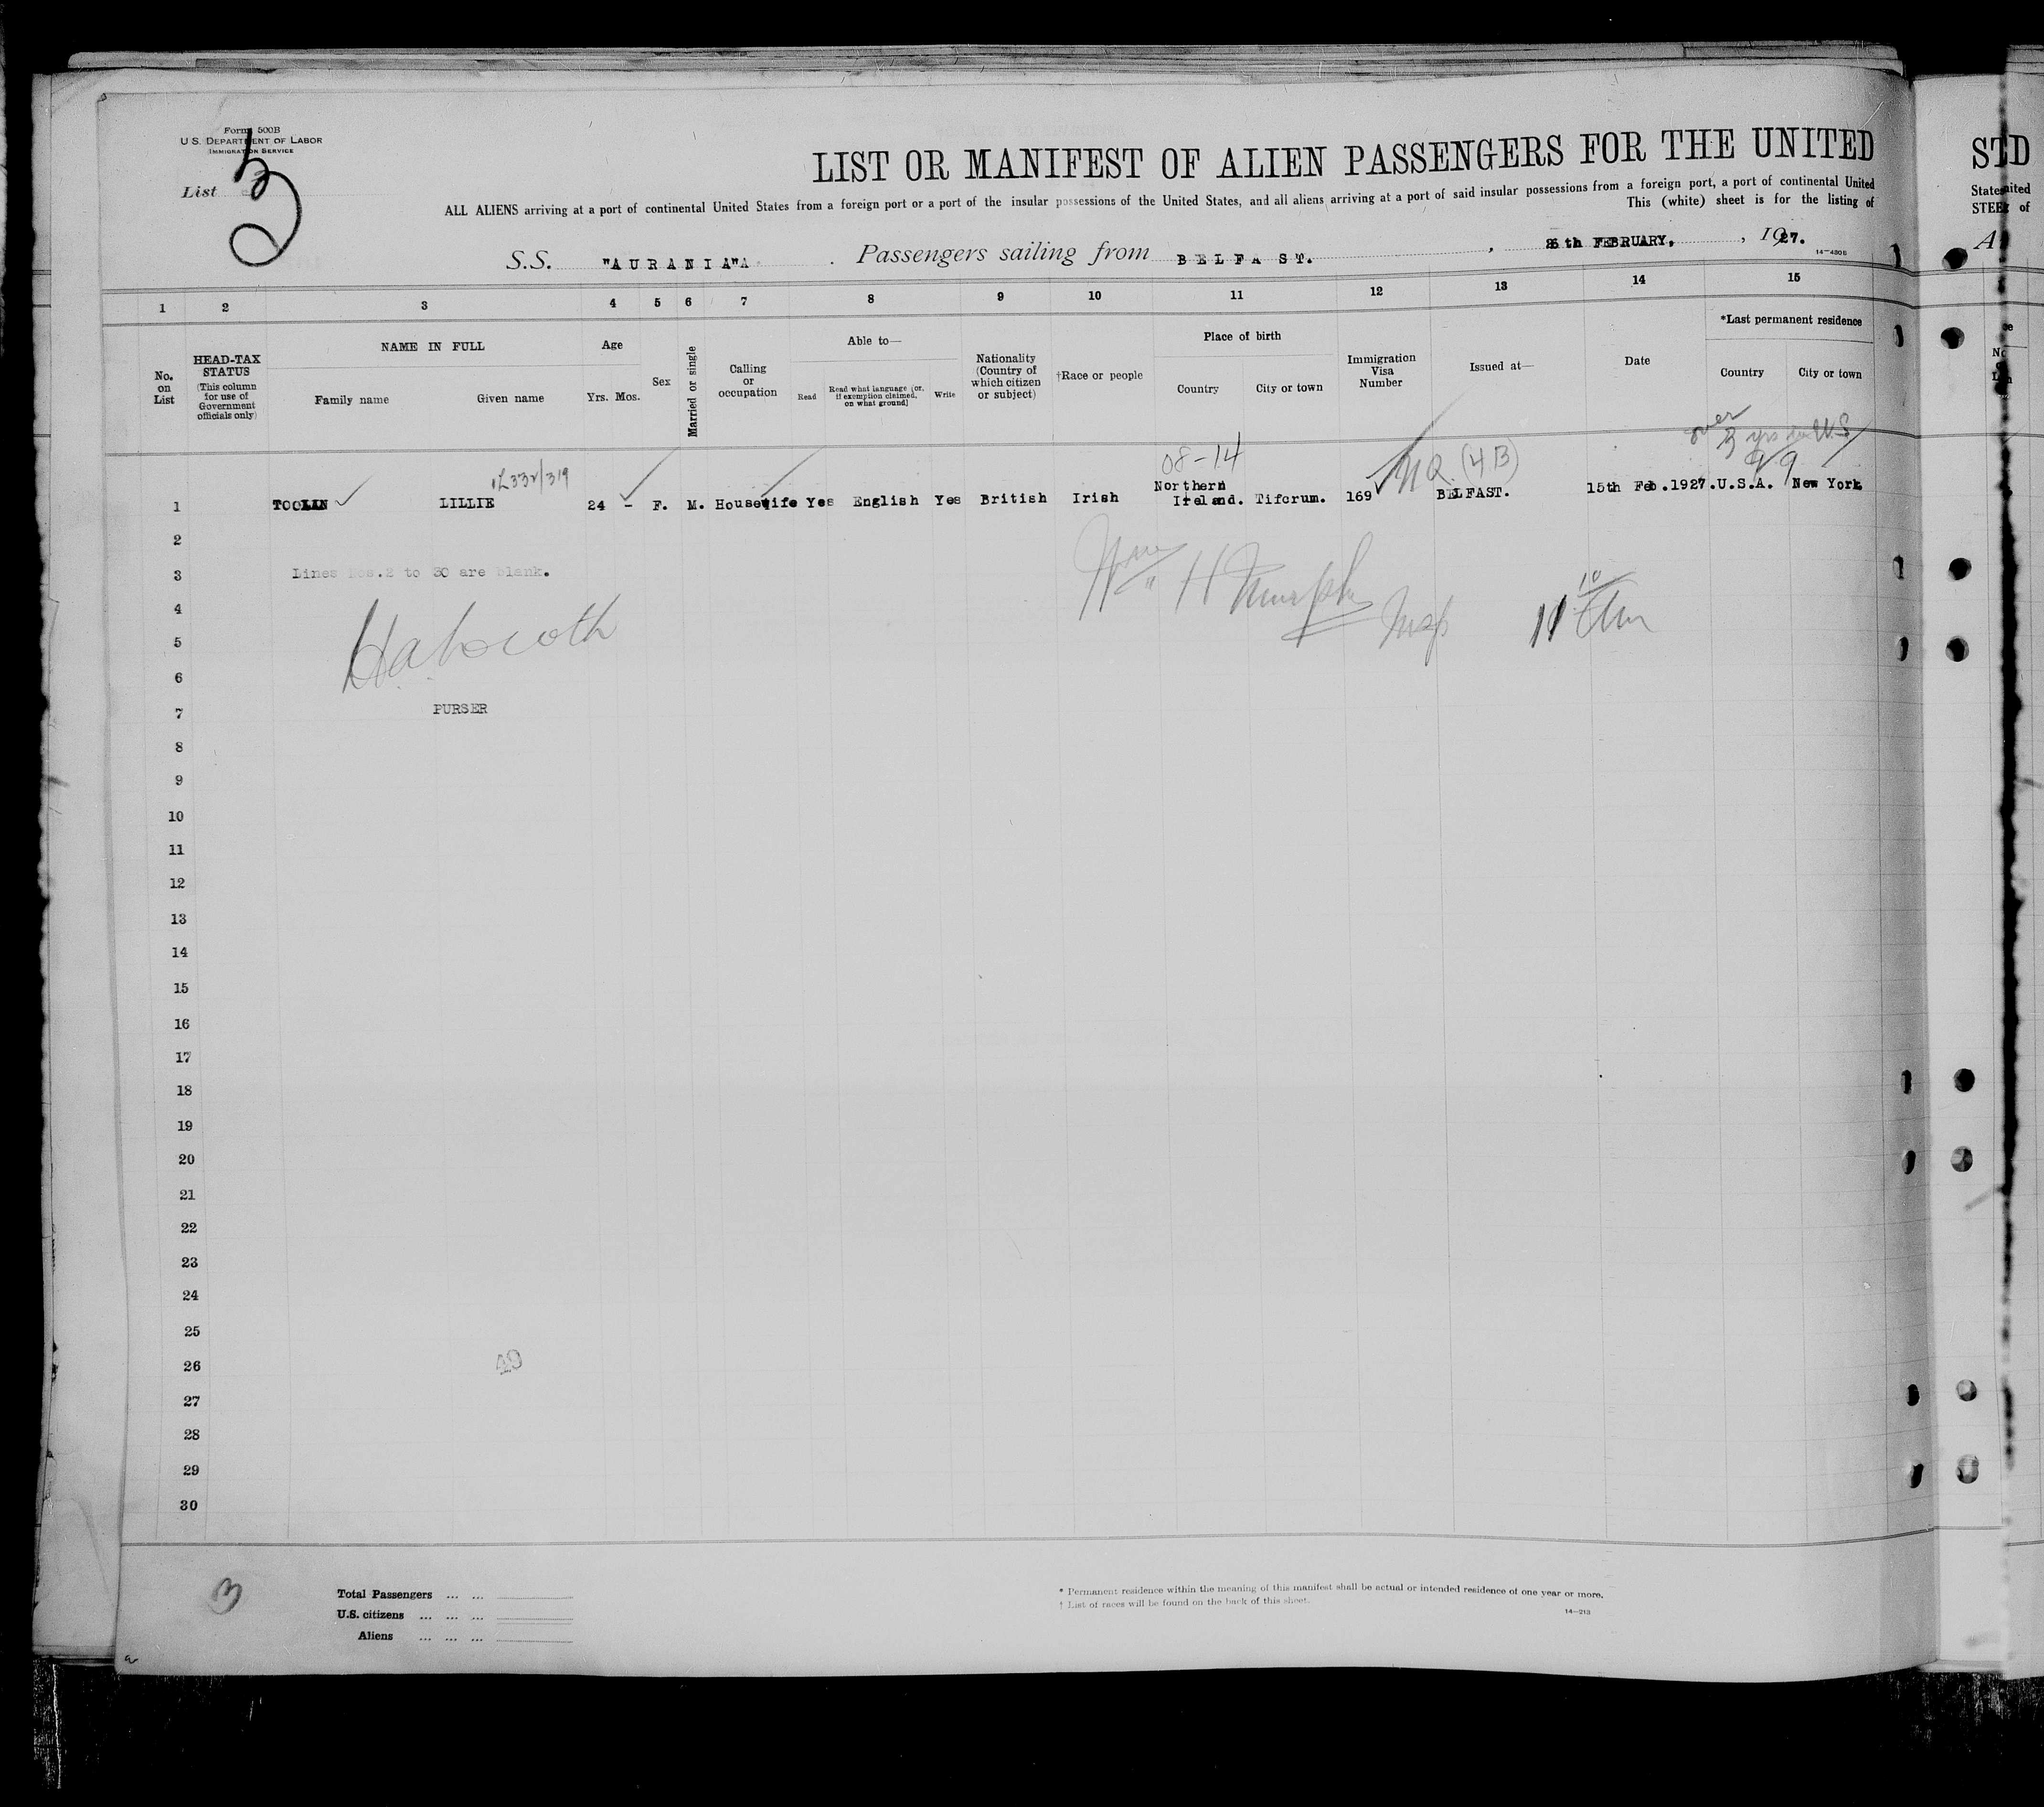 Form 500B
U.S. DEPARTMENT OF LABOR
IMMIGRATION SERVICE
List 3
LIST OR MANIFEST OF ALIEN PASSENGERS FOR THE UNITED
ALL ALIENS arriving at a port of continental United States from a foreign port or a port of the insular possessions of the United States, and all aliens arriving at a port of said insular possessions from a foreign port, a port of continental United
This (white) sheet is for the listing of
S.S. "AURANIA" Passengers sailing from BELFAST. , FEBRUARY. , 1927.
14—430B
1 2 3 4 5 6 7 8 9 10 11 12 13 14 15
No. on List
HEAD-TAX STATUS (This column for use of Government officials only)
NAME IN FULL
Family name Given name
Age
Yrs. Mos.
Sex
Married or single
Calling or occupation
Able to—
Read
Read what language [or, if exemption claimed, on what ground]
Write
Nationality (Country of which citizen or subject)
†Race or people
Place of birth
Country City or town
Immigration Visa Number
Issued at—
Date
*Last permanent residence
Country City or town
over 3 yrs in U.S
08-14 NQ (4B)
1 TOOLIN LILLIE 24 - F. M. Housewife Yes English Yes British Irish Northern Ireland. Tifcrum. 169 BELFAST. 15th Feb.1927. U.S.A. New York
2
3 Lines Nos.2 to 30 are blank.
4
5
6
7 PURSER
8
9
10
11
12
13
14
15
16
17
18
19
20
21
22
23
24
25
26 49
27
28
29
30
3
Total Passengers ... ...
U.S. citizens ... ... ...
Aliens ... ... ...
* Permanent residence within the meaning of this manifest shall be actual or intended residence of one year or more.
† List of races will be found on the back of this sheet.
14—213